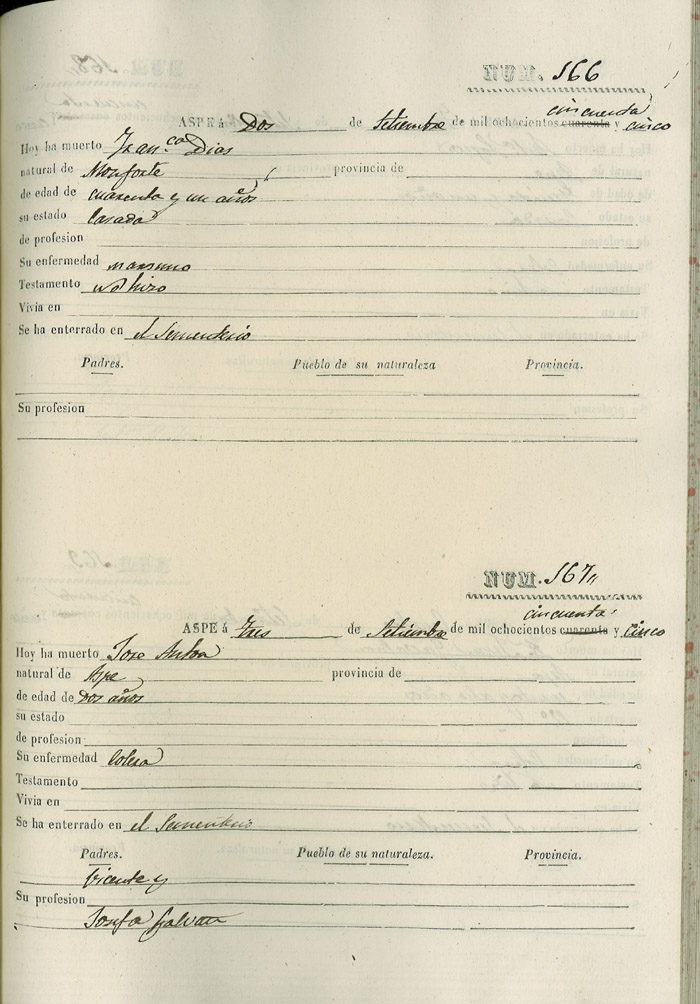 NUM. 166
cincuenta
ASPE á Dos de Setiembre de mil ochocientos cuarenta y cinco
Hoy ha muerto Fran.ca Dias
natural de Monforte provincia de
de edad de cuarenta y un años
su estado Casada
de profesion
Su enfermedad
Testamento no hizo
Vivia en
Se ha enterrado en el Sementerio
Padres. Pueblo de su naturaleza Provincia.
Su profesion
NUM. 167
cincuenta
ASPE á tres de Setiembre de mil ochocientos cuarenta y cinco
Hoy ha muerto Jose Anton
natural de Aspe provincia de
de edad de Dos años
su estado
de profesion
Su enfermedad Colera
Testamento
Vivia en
Se ha enterrado en el Sementerio
Padres. Pueblo de su naturaleza. Provincia.
Vicente y
Su profesion
Josefa Galvañ